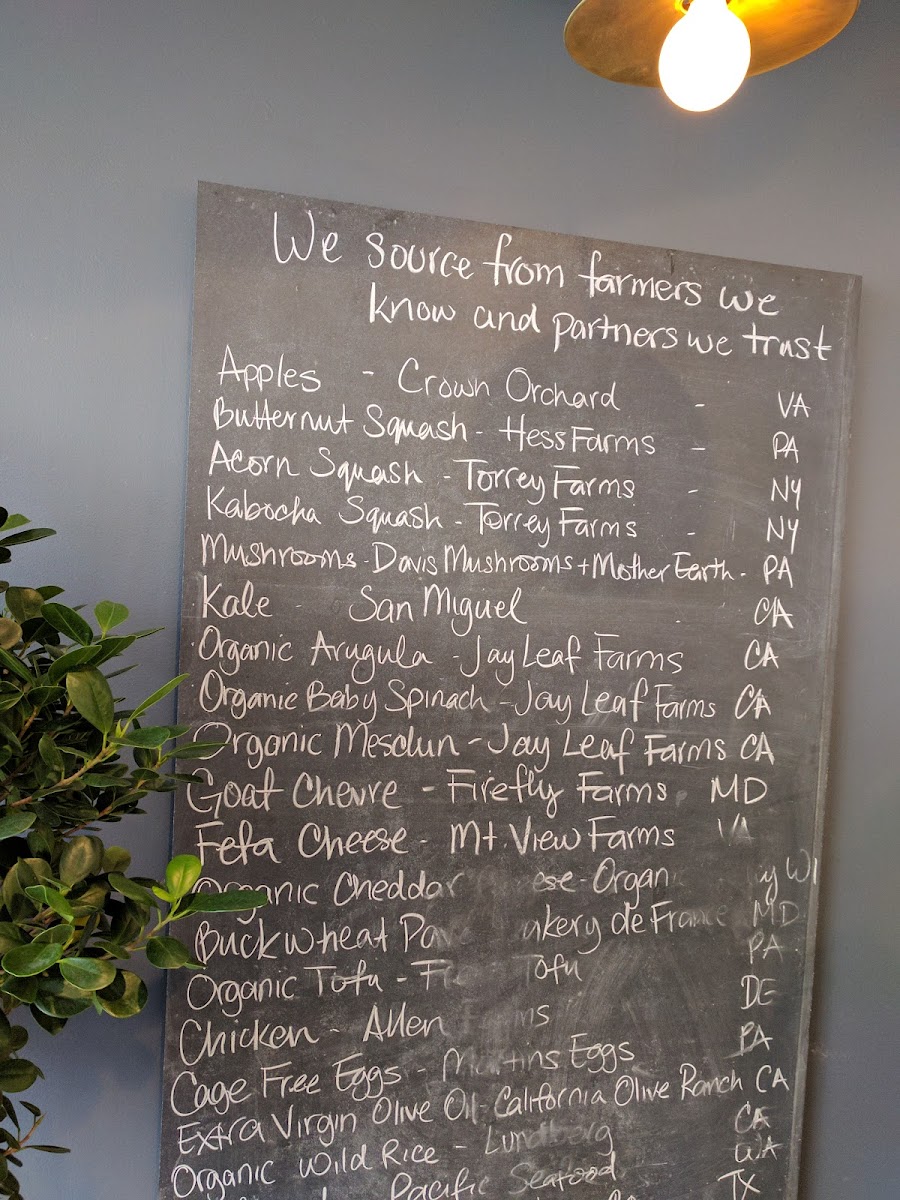 We source from farmers we
know and partners we trust
Apples - Crown Orchard - VA
Butternut Squash - Hess Farms - PA
Acorn Squash - Torrey Farms - NY
Kabocha Squash - Torrey Farms - NY
Mushrooms - Davis Mushrooms + Mother Earth - PA
Kale - San Miguel - CA
Organic Arugula - Jay Leaf Farms CA
Organic Baby Spinach - Jay Leaf Farms CA
Organic Mesclun - Jay Leaf Farms CA
Goat Chevre - Firefly Farms MD
Feta Cheese - Mt. View Farms VA
Organic Cheddar - WI
Buckwheat de France MD
Organic Tofu - Tofu PA
Chicken - Allen DE
Cage Free Eggs - Martins Eggs PA
Extra Virgin Olive Oil - California Olive Ranch CA
Organic Wild Rice - Lundberg CA
Pacific Seafood WA
TX